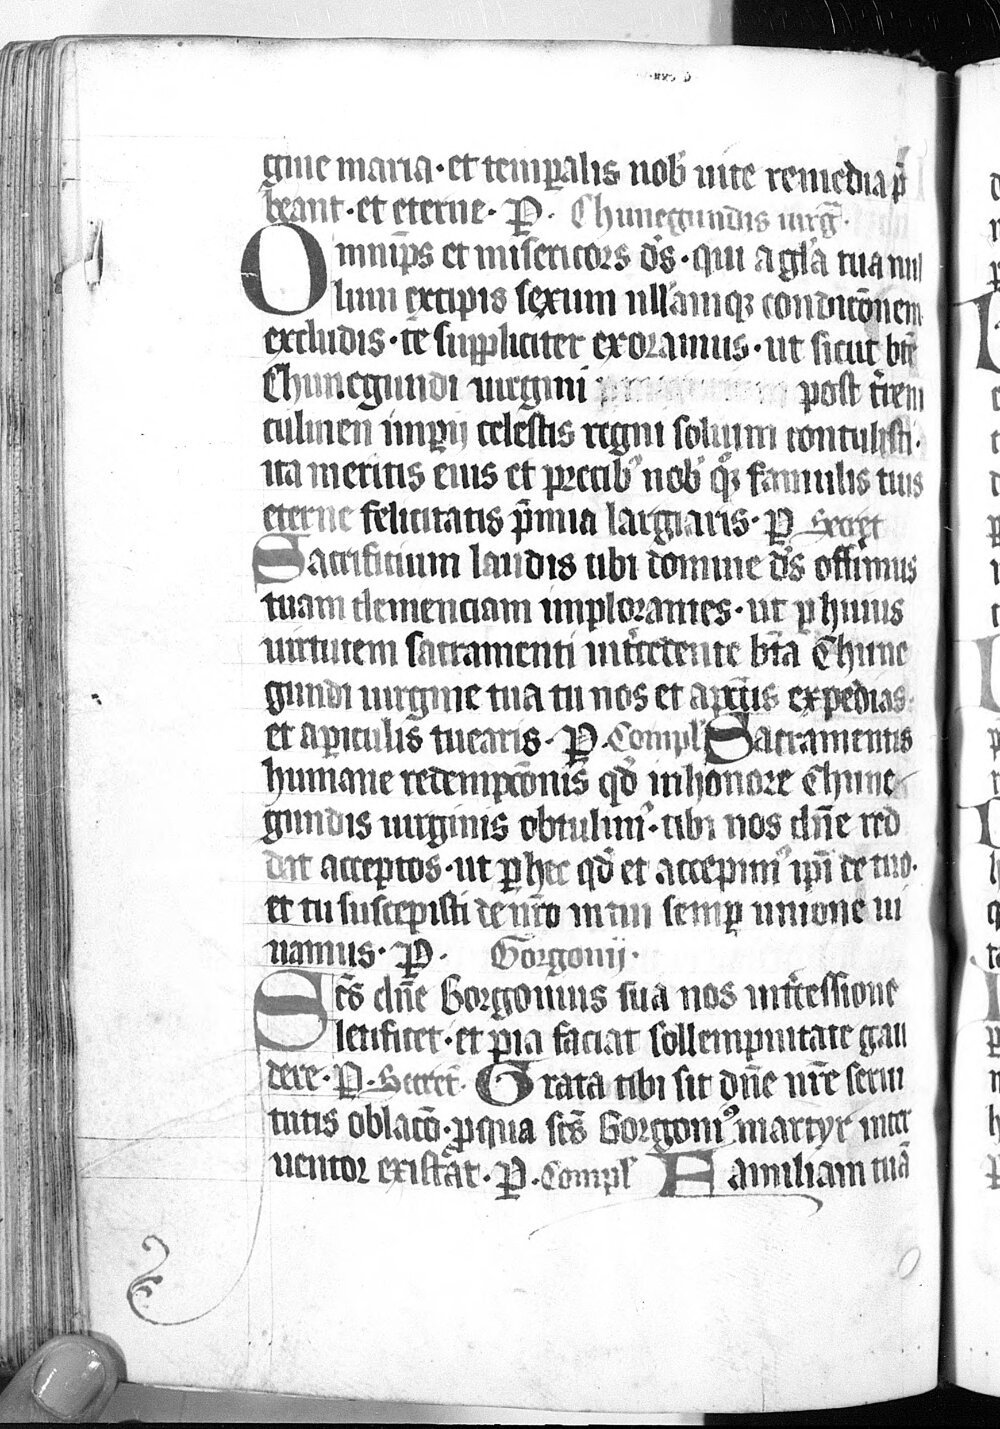 gine maria · et temꝑalis nob̛ uite remedia p̄
beant · et eterne · P · Chunegundis uirg̅ ·
Omnip̄s et misericors d̄s · qui a gl̄a tua nul
lum excipis sexum ullamqꝫ condicōnem
excludis · te suppliciter exoramus · ut sicut bt̄e
Chunegundi uirgini post t̄reni
culmen imꝑij celestis regni solium contulisti ·
ita meritis eius et precibꝰ nob̛ qꝫ famulis tuis
eterne felicitatis p̄mia largiaris · P Secret
Sacrificium laudis tibi domine d̄s offerimus
tuam clemenciam implorantes · ut ꝑ huius
uirtutem sacramenti int̄cedente bt̄a Chune
gundi uirgine tua tu nos et a pctīs expedias ·
et a ꝑiculis tuearis · P · Compl̛ Sacramentis
humane redempcōnis qd̛ in honore Chune
gundis uirginis obtulimꝰ · tibi nos dn̄e red
dat acceptos · ut ꝑ hec qd̛ et accepimꝰ ip̄i de tuo ·
et tu suscepisti de nr̄o in tui semꝑ unione ui
uamus · P · Gorgonij ·
Sc̄s dn̄e Gorgonius sua nos int̄cessione
letificet · et pia faciat sollempnitate gau
dere · P · Secret · Grata tibi sit dn̄e nr̄e serui
tutis oblacō · ꝓ qua sc̄s Gorgoniꝰ martyr inter
uentor existat · P · Compl̛ Familiam tuā